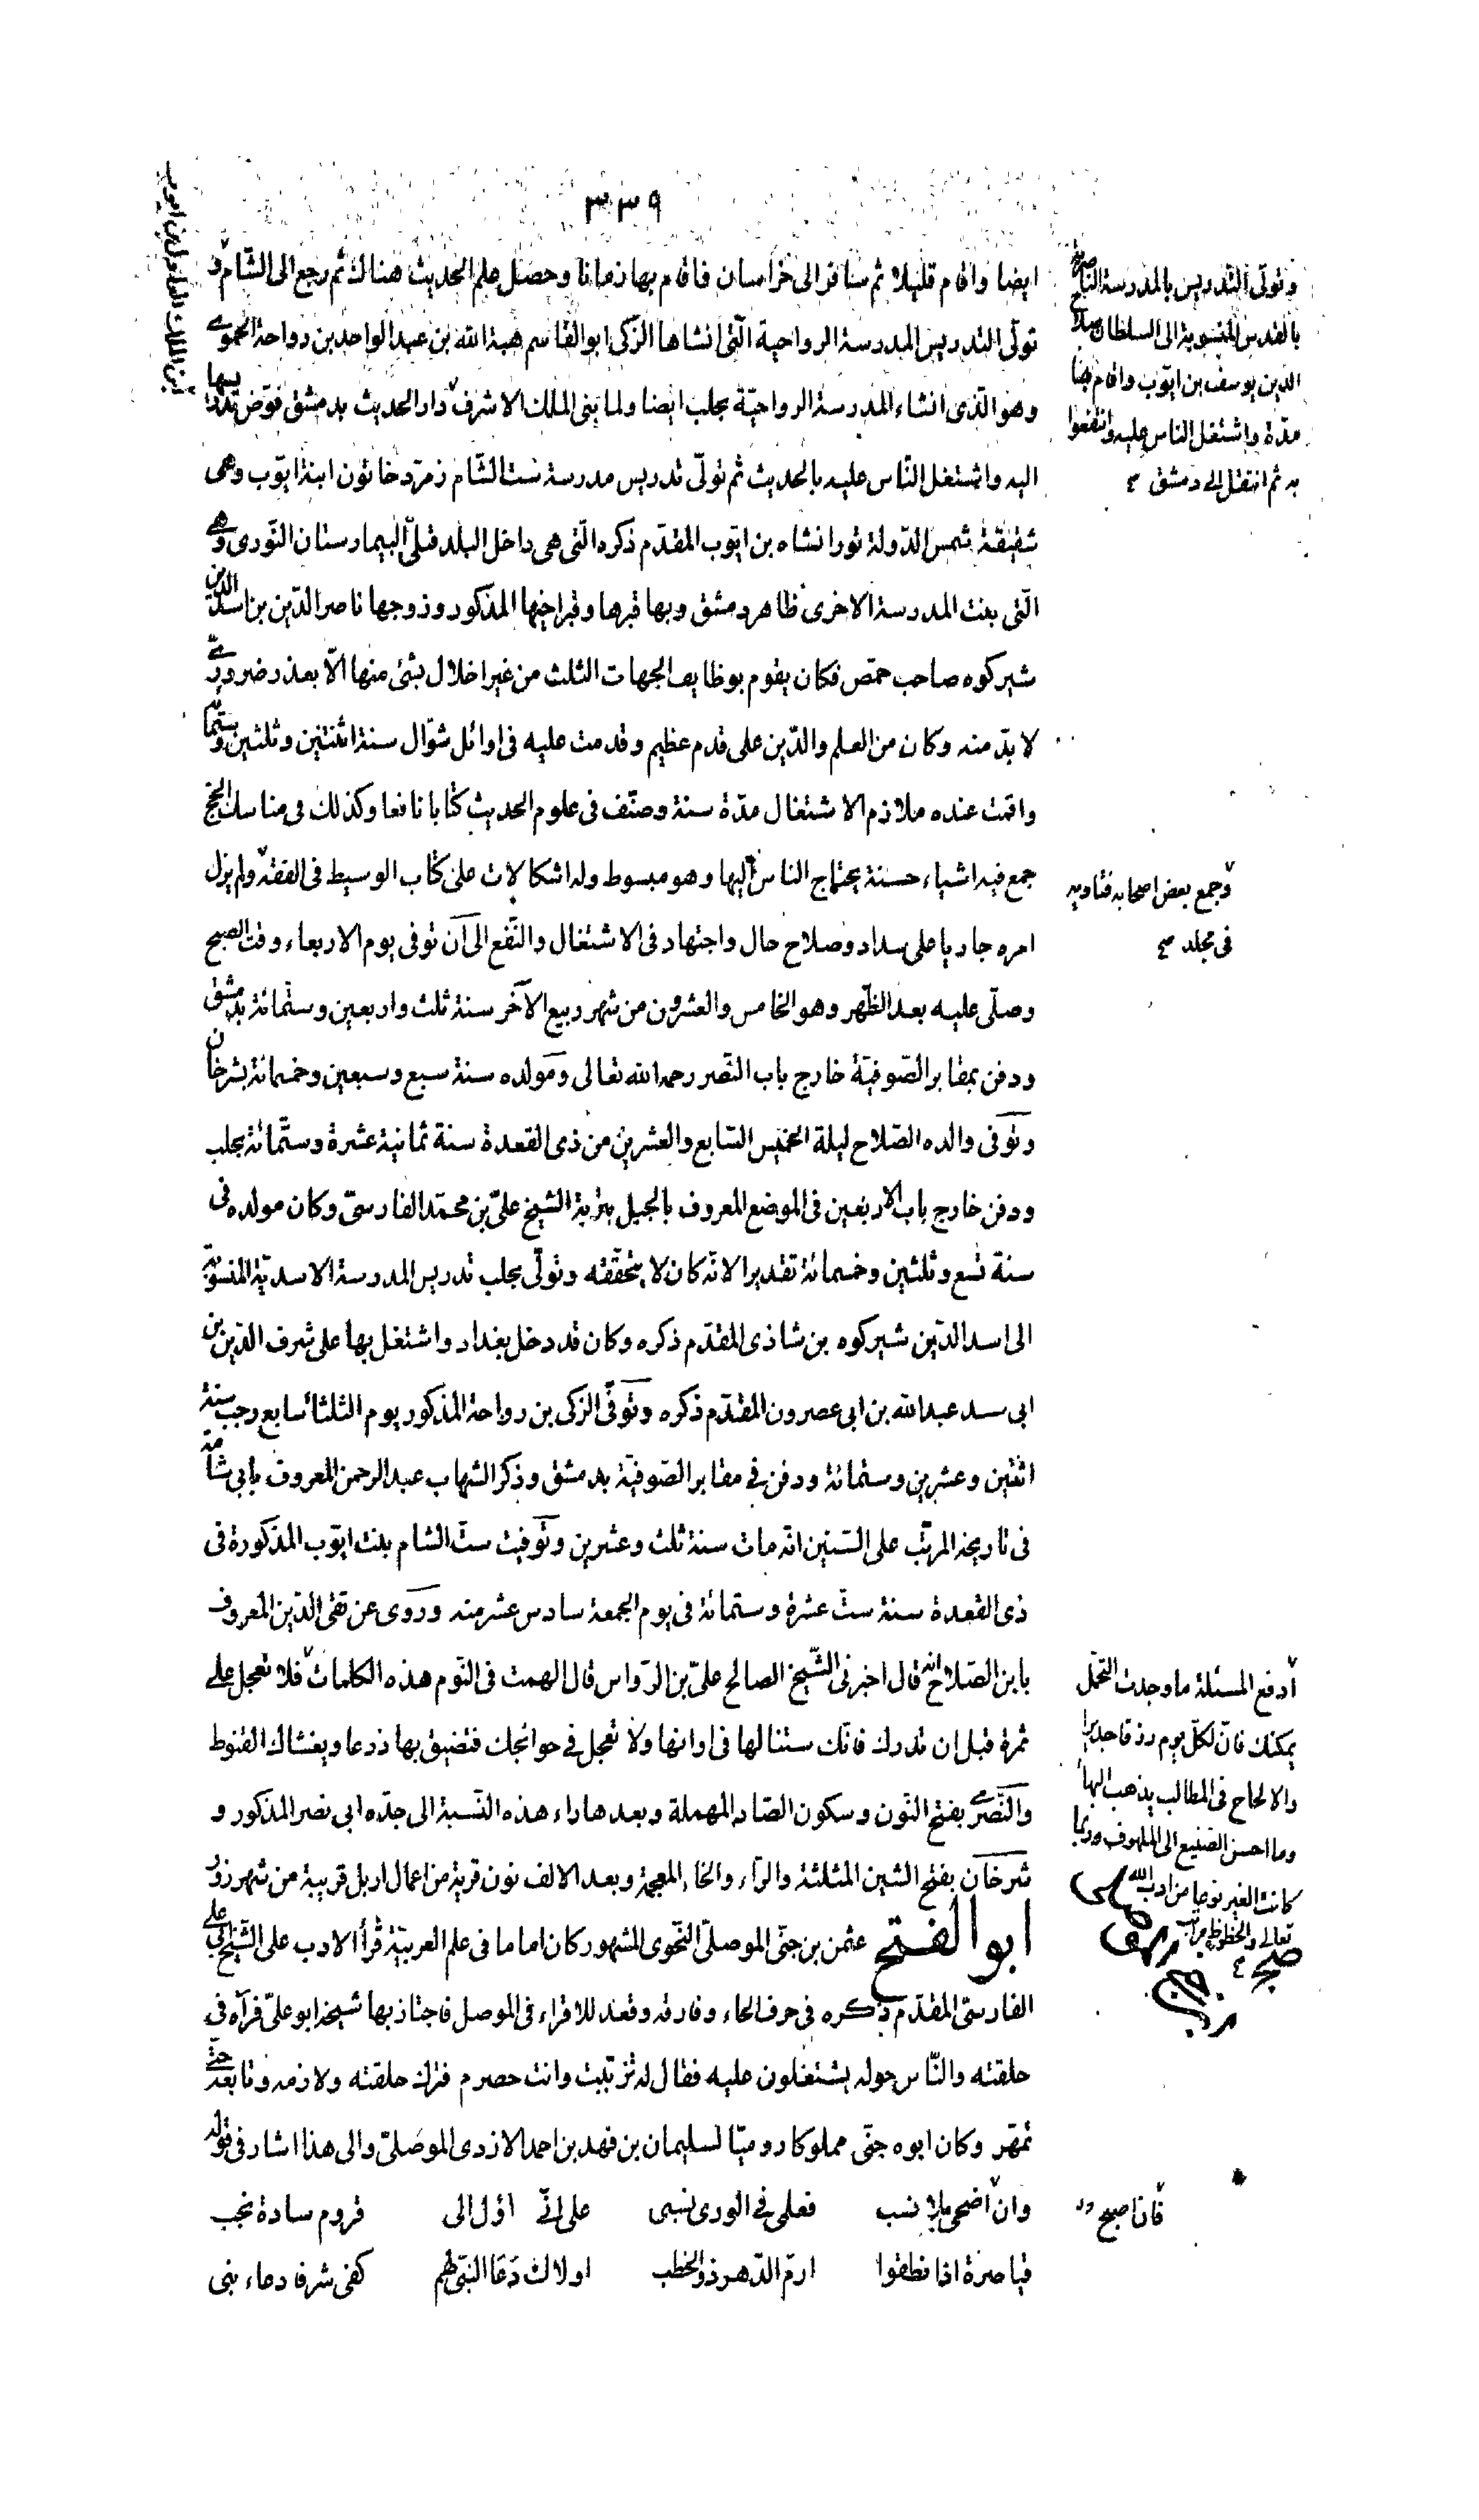 ٣٣٩
ايضا واقام قليلا ثم سافر الى خراسان فاقام بها زمانا وحصل علم الحديث هناك ثم رجع الى الشّام و
تولّى التدريس المدرسة الرواحية الّتى انشاها الزكى ابو القاسم هبة الله بن عبد الواحد بن رواحة الحموى
وهو الّذى انشاء المدرسة الرواحيّة بحلب ايضا ولما بنى الملك الاشرف دار الحديث بدمشق فوّض تدريسها
اليه واشتغل النّاس عليه بالحديث ثم تولّى تدريس مدرسة ست الشّام زمرّد خاتون ابنة ايّوب وهى
شقيقة شمس الدّولة تورانشاه بن ايّوب المقدّم ذكره الّتى هى داخل البلد قبلىّ البيمارستان النّورى وهى
الّتى بنت المدرسة الاخرى ظاهر دمشق وبها قبرها وقبر اخيها المذكور وزوجها ناصر الدّين بن اسد الدين
شيركوه صاحب حمص فكان يقوم بوظايف الجهات الثلث من غير اخلال بشئ منها الاّ بعذر ضرورىّ
لا بدّ منه وكان من العلم والدّين على قدم عظيم وقدمت عليه فى اوائل شوّال سنة اثنتين وثلثين وستمائة
واقمت عنده ملازم الاشتغال مدّة سنة وصنّف فى علوم الحديث كتابا نافعا وكذلك فى مناسك الحجّ
جمع فيه اشياء حسنة يحتاج الناس اليها وهو مبسوط وله اشكالات على كتاب الوسيط فى الفقه ولم يزل
امره جاريا على سداد وصلاح حال واجتهاد فى الاشتغال والنّفع الى ان توفى يوم الاربعاء وقت الصبح
وصلّى عليه بعد الظّهر وهو الخامس والعشرون من شهر ربيع الآخر سنة ثلث واربعين وستّمائة بدمشق
ودفن بمقابر الصّوفيّة خارج باب النّصر رحمه الله تعالى ومولده سنة سبع وسبعين وخمسمائة بشرخان
وتوفى والده الصّلاح ليلة الخميس السّابع والعشرين من ذى القعدة سنة ثمانية عشرة وستّمائة بحلب
ودفن خارج باب الاربعين فى الموضع المعروف بالجبل بتربة الشيخ علىّ بن محمّد الفارسىّ وكان مولده فى
سنة تسع وثلثين وخمسمائة تقديرا لانّه كان لا يتحقّقه وتولّى بحلب تدريس المدرسة الاسديّة المنسوبة
الى اسد الدّين شيركوه بن شاذى المقدّم ذكره وكان قد دخل بغداد واشتغل بها على شرف الدّين بن
ابى سـد عبد الله بن ابى عصرون المقدّم ذكره وتوفّى الزكى بن رواحة المذكور يوم الثلثا سابع رجب سنة
اثنتين وعشرين وستمائة ودفن فى مقابر الصّوفيّة بدمشق وذكر الشهاب عبد الرحمن المعروف بابى شامة
فى تاريخه المرتّب على السّنين انّه مات سنة ثلث وعشرين وتوفيت ستّ الشام بنت ايّوب المذكورة فى
ذى القعدة سنة ستّ عشرة وستمائة فى يوم الجمعة سادس عشر منه وروى عن تقى الدّين المعروف
بابن الصّلاح انه قال اخبرنى الشّيخ الصالح علىّ بن الرّواس قال الهمت فى النّوم هذه الكلمات فلا تعجل على
ثمرة قبل ان تدرك فانّك ستنالها فى اوانها ولا تعجل فى حوائجك فتضيق بها ذرعا ويغشاك القنوط
والنّصرى بفتح النّون وسكون الصّاد المهملة وبعدها راء هذه النّسبة الى جدّه ابى نصر المذكور و
شرخان بفتح الشين المثلثة والرّاء والخاء المعجمة وبعد الالف نون قرية من اعمال اربل قريبة من شهرزور
ابو الفتح عثمن بن جنّى الموصلىّ النّحوى المشهور كان اماما فى علم العربيّة قرأ الادب على الشّيخ ابى على
الفارسىّ المقدّم ذكره فى حرف الحاء وفارقه وقعد للاقراء فى الموصل فاجتاز بها شيخه ابو علىّ فرآه فى
حلقته والنّاس حوله يشتغلون عليه فقال له تزبّبت وانت حصرم فترك حلقته ولازمه وتابعه حتّى
تمهّر وكان ابوه جنّى مملوكا روميّا لسليمان بن فهد بن احمد الازدى الموصلىّ والى هذا اشار فى قوله
وان اضحى بلا نسب فعلمى فى الورى نسبى على انّى اؤل الى قروم سادة نجب
قياصرة اذا نطقوا ارمّ الدّهر ذو الخطب اولاك دعا النّبىّ لهم كفى شرفا دعاء نبى
وتولّى التّدريس بالمدرسة الناصرية
بالقدس المنسوبة الى السلطان صلاح
الدين يوسف بن ايّوب واقام بها
مدّة واشتغل الناس عليه وانتفعوا
به ثم انتقل الى دمشق
ابن الملك العادل بن ايوب
وجمع بعض اصحابه فتاويه
فى مجلد
ادفع المسئلة ما وجدت التحمّل
يمكنك فانّ لكلّ يوم رزقا جديدا
والالحاح فى المطالب يذهب البهاء
وما احسن الصّنيع الى الملهوف وربّما
كانت الغير نوعا من ادب الله
تعالى والحظوظ مراتب
فان اصبح